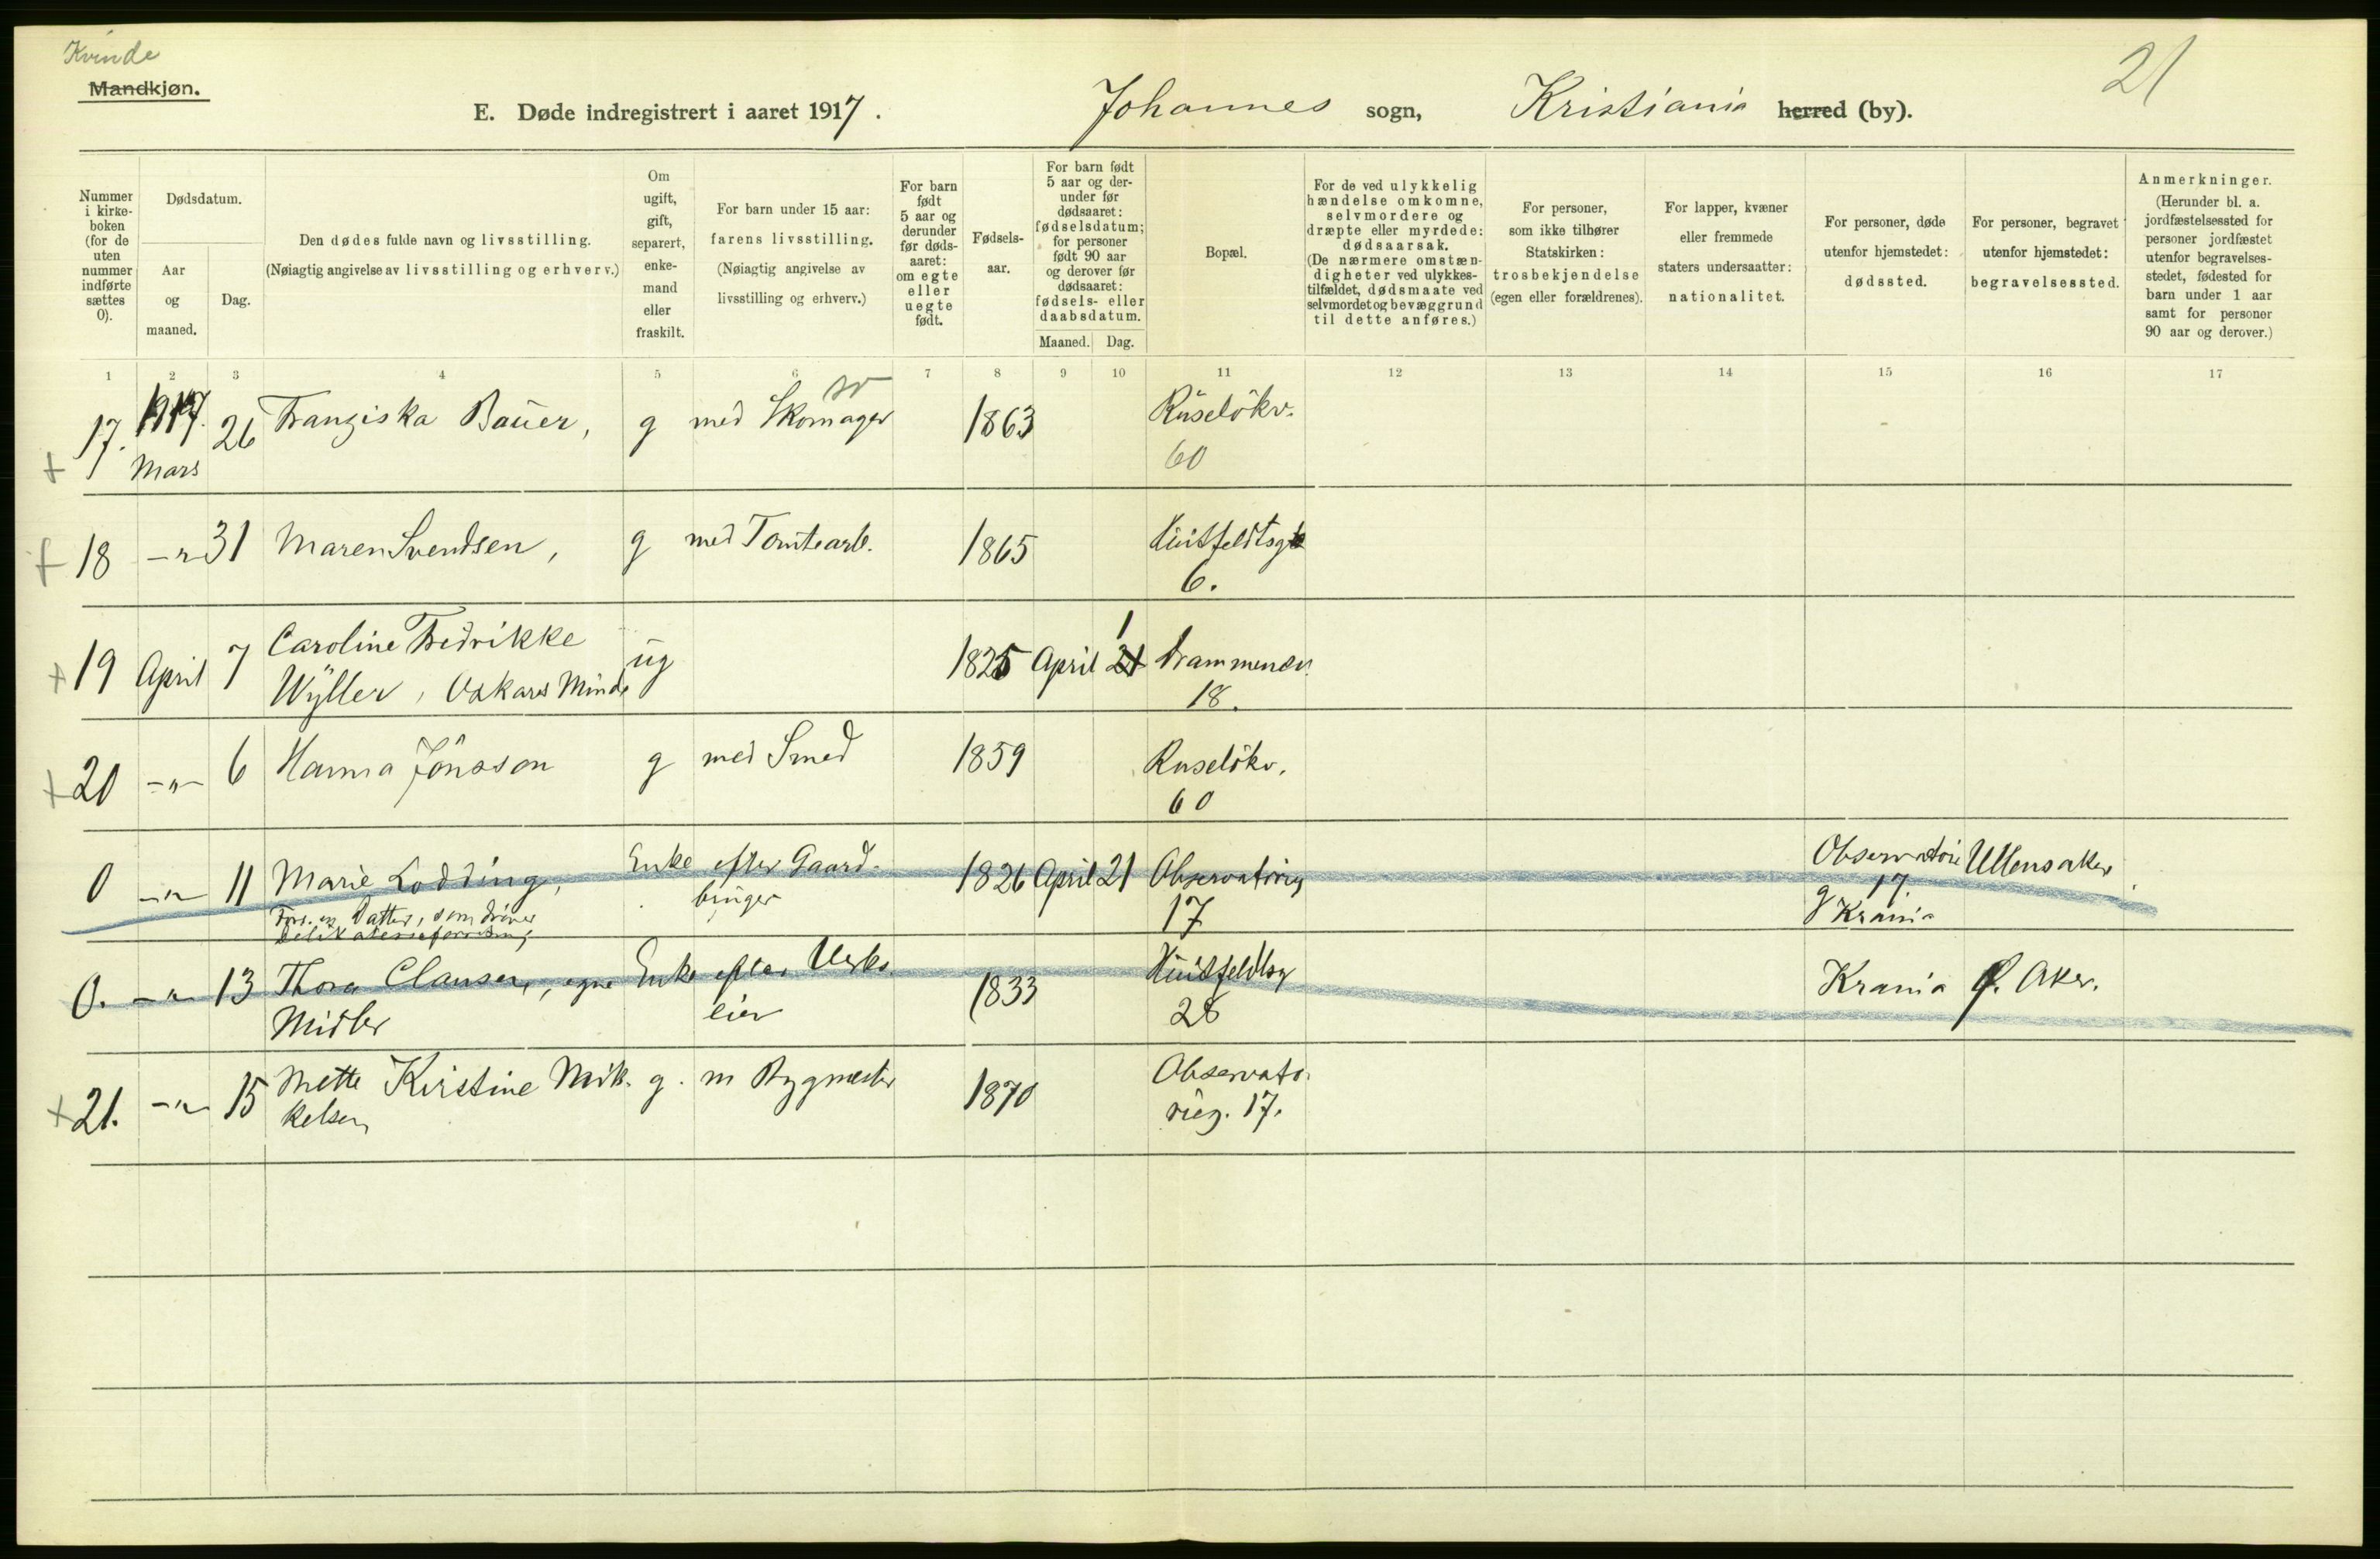 Kvinde
Mandkjøn.
21
E. Døde indregistrert i aaret 1917. Johannes sogn, Kristiania herred (by).
Nummer i kirke-boken (for de uten nummer indførte sættes 0).
Dødsdatum.
Aar og maaned.
Dag.
Den dødes fulde navn og livsstilling.
(Nøiagtig angivelse av livsstilling og erhverv.)
Om ugift, gift, separert, enke-mand eller fraskilt.
For barn under 15 aar:
farens livsstilling.
(Nøiagtig angivelse av
livsstilling og erhverv.)
For barn født 5 aar og derunder før døds-aaret: om egte eller uegte født.
Fødsels-aar.
For barn født 5 aar og der-under før dødsaaret: fødselsdatum; for personer født 90 aar og derover før dødsaaret: fødsels- eller daabsdatum.
Maaned. Dag.
Bopæl.
For de ved ulykkelig hændelse omkomne, selvmordere og dræpte eller myrdede: dødsaarsak. (De nærmere omstæn-digheter ved ulykkes-tilfældet, dødsmaate ved selvmordet og bevæggrund til dette anføres.)
For personer, som ikke tilhører Statskirken: trosbekjendelse (egen eller forældrenes).
For lapper, kvæner eller fremmede staters undersaatter: nationalitet.
For personer, døde utenfor hjemstedet: dødssted.
For personer, begravet utenfor hjemstedet: begravelsessted.
Anmerkninger. (Herunder bl. a. jordfæstelsessted for personer jordfæstet utenfor begravelses-stedet, fødested for barn under 1 aar samt for personer 90 aar og derover.)
1 2 3 4 5 6 7 8 9 10 11 12 13 14 15 16 17
17. 1917. 26 Franziska Bauer, g med Skomager 1863 Ruseløkv.
Mars 60
18 -"- 31 Maren Svendsen, g med Tomtearb. 1865 Huitfeldtsgt
6.
19 April 7 Caroline Fredrikke ug 1825 April 21 1 Drammensv.
Wyller, Oskars Minde 18.
20 -"- 6 Hanna Jönsson g med Smed 1859 Ruseløkv.
60
0 -"- 11 Marie Lodding, Enke efter Gaard- 1826 April 21 Observatorieg Observatorie Ullensaker
bruger 17 g 17.
Fors. en Datter, som driver Krania
Delikatesseforretning
0. -"- 13 Thora Clausen, egne Enke efter Verks- 1833 Huitfeldtsg Krania V. Aker.
Midler eier 28
21. -"- 15 Mette Kirstine Mik- g. m Bygmester 1870 Observato-
kelsen rieg. 17.